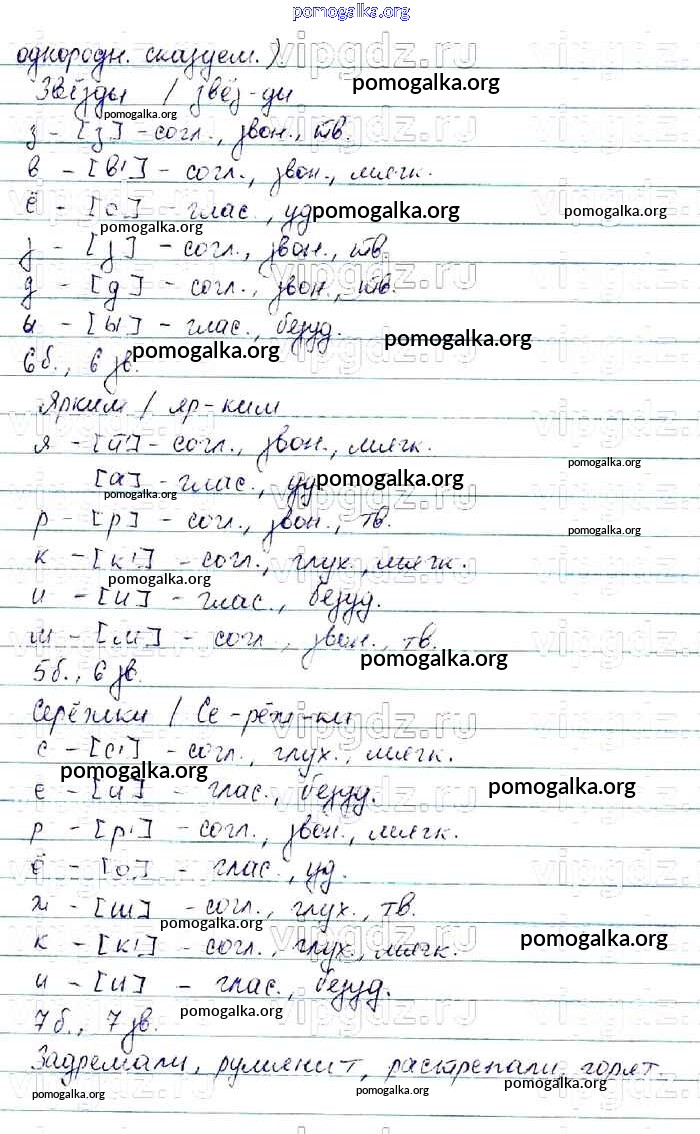 pomogalka.org
однородн. сказуем.)
Звёзды / звёз-ды
з - [з] - согл., звон., тв.
в - [в'] - согл., звон., мягк.
ё - [о] - глас., уд
з - [з] - согл., звон., тв.
д - [д] - согл., звон., тв.
ы - [ы] - глас., безуд.
6 б., 6 зв.
Ярким / яр-ким
я - [й'] - согл., звон., мягк.
[а] - глас., уд.
р - [р] - согл., звон., тв.
к - [к'] - согл., глух., мягк.
и - [и] - глас., безуд.
м - [м] - согл., звон., тв.
5 б., 6 зв.
Серёжки / Се-рёж-ки
с - [с'] - согл., глух., мягк.
е - [и] - глас., безуд.
р - [р'] - согл., звон., мягк.
ё - [о] - глас., уд.
ж - [ш] - согл., глух., тв.
к - [к'] - согл., глух., мягк.
и - [и] - глас., безуд.
7 б., 7 зв.
Задремали, румянит, растрепали, горят.